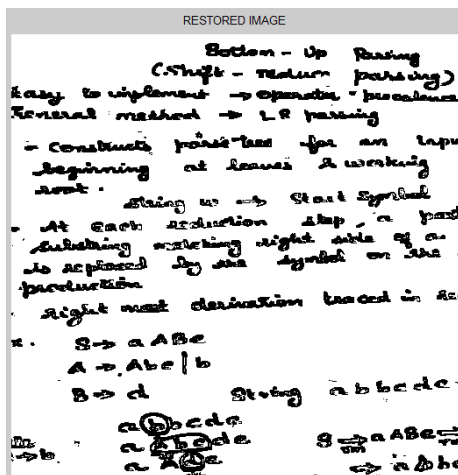 RESTORED IMAGE
Bottom - Up Parsing
(Shift - reduce parsing)
Easy to implement → operator - precedence
General method → LR parsing
- Constructs parse tree for an inpu
beginning at leaves & working
root.
String w → Start Symbol
- At each reduction step, a part
substring matching right side of a
is replaced by the symbol on the
production
Right most derivation traced in re
x. S → a A B e
A → A b c | b
B → d String a b b c d e
a b b c d e
a A b c d e S ⇒ a A B e ⇒
→ b a A d e ⇒ a A b c